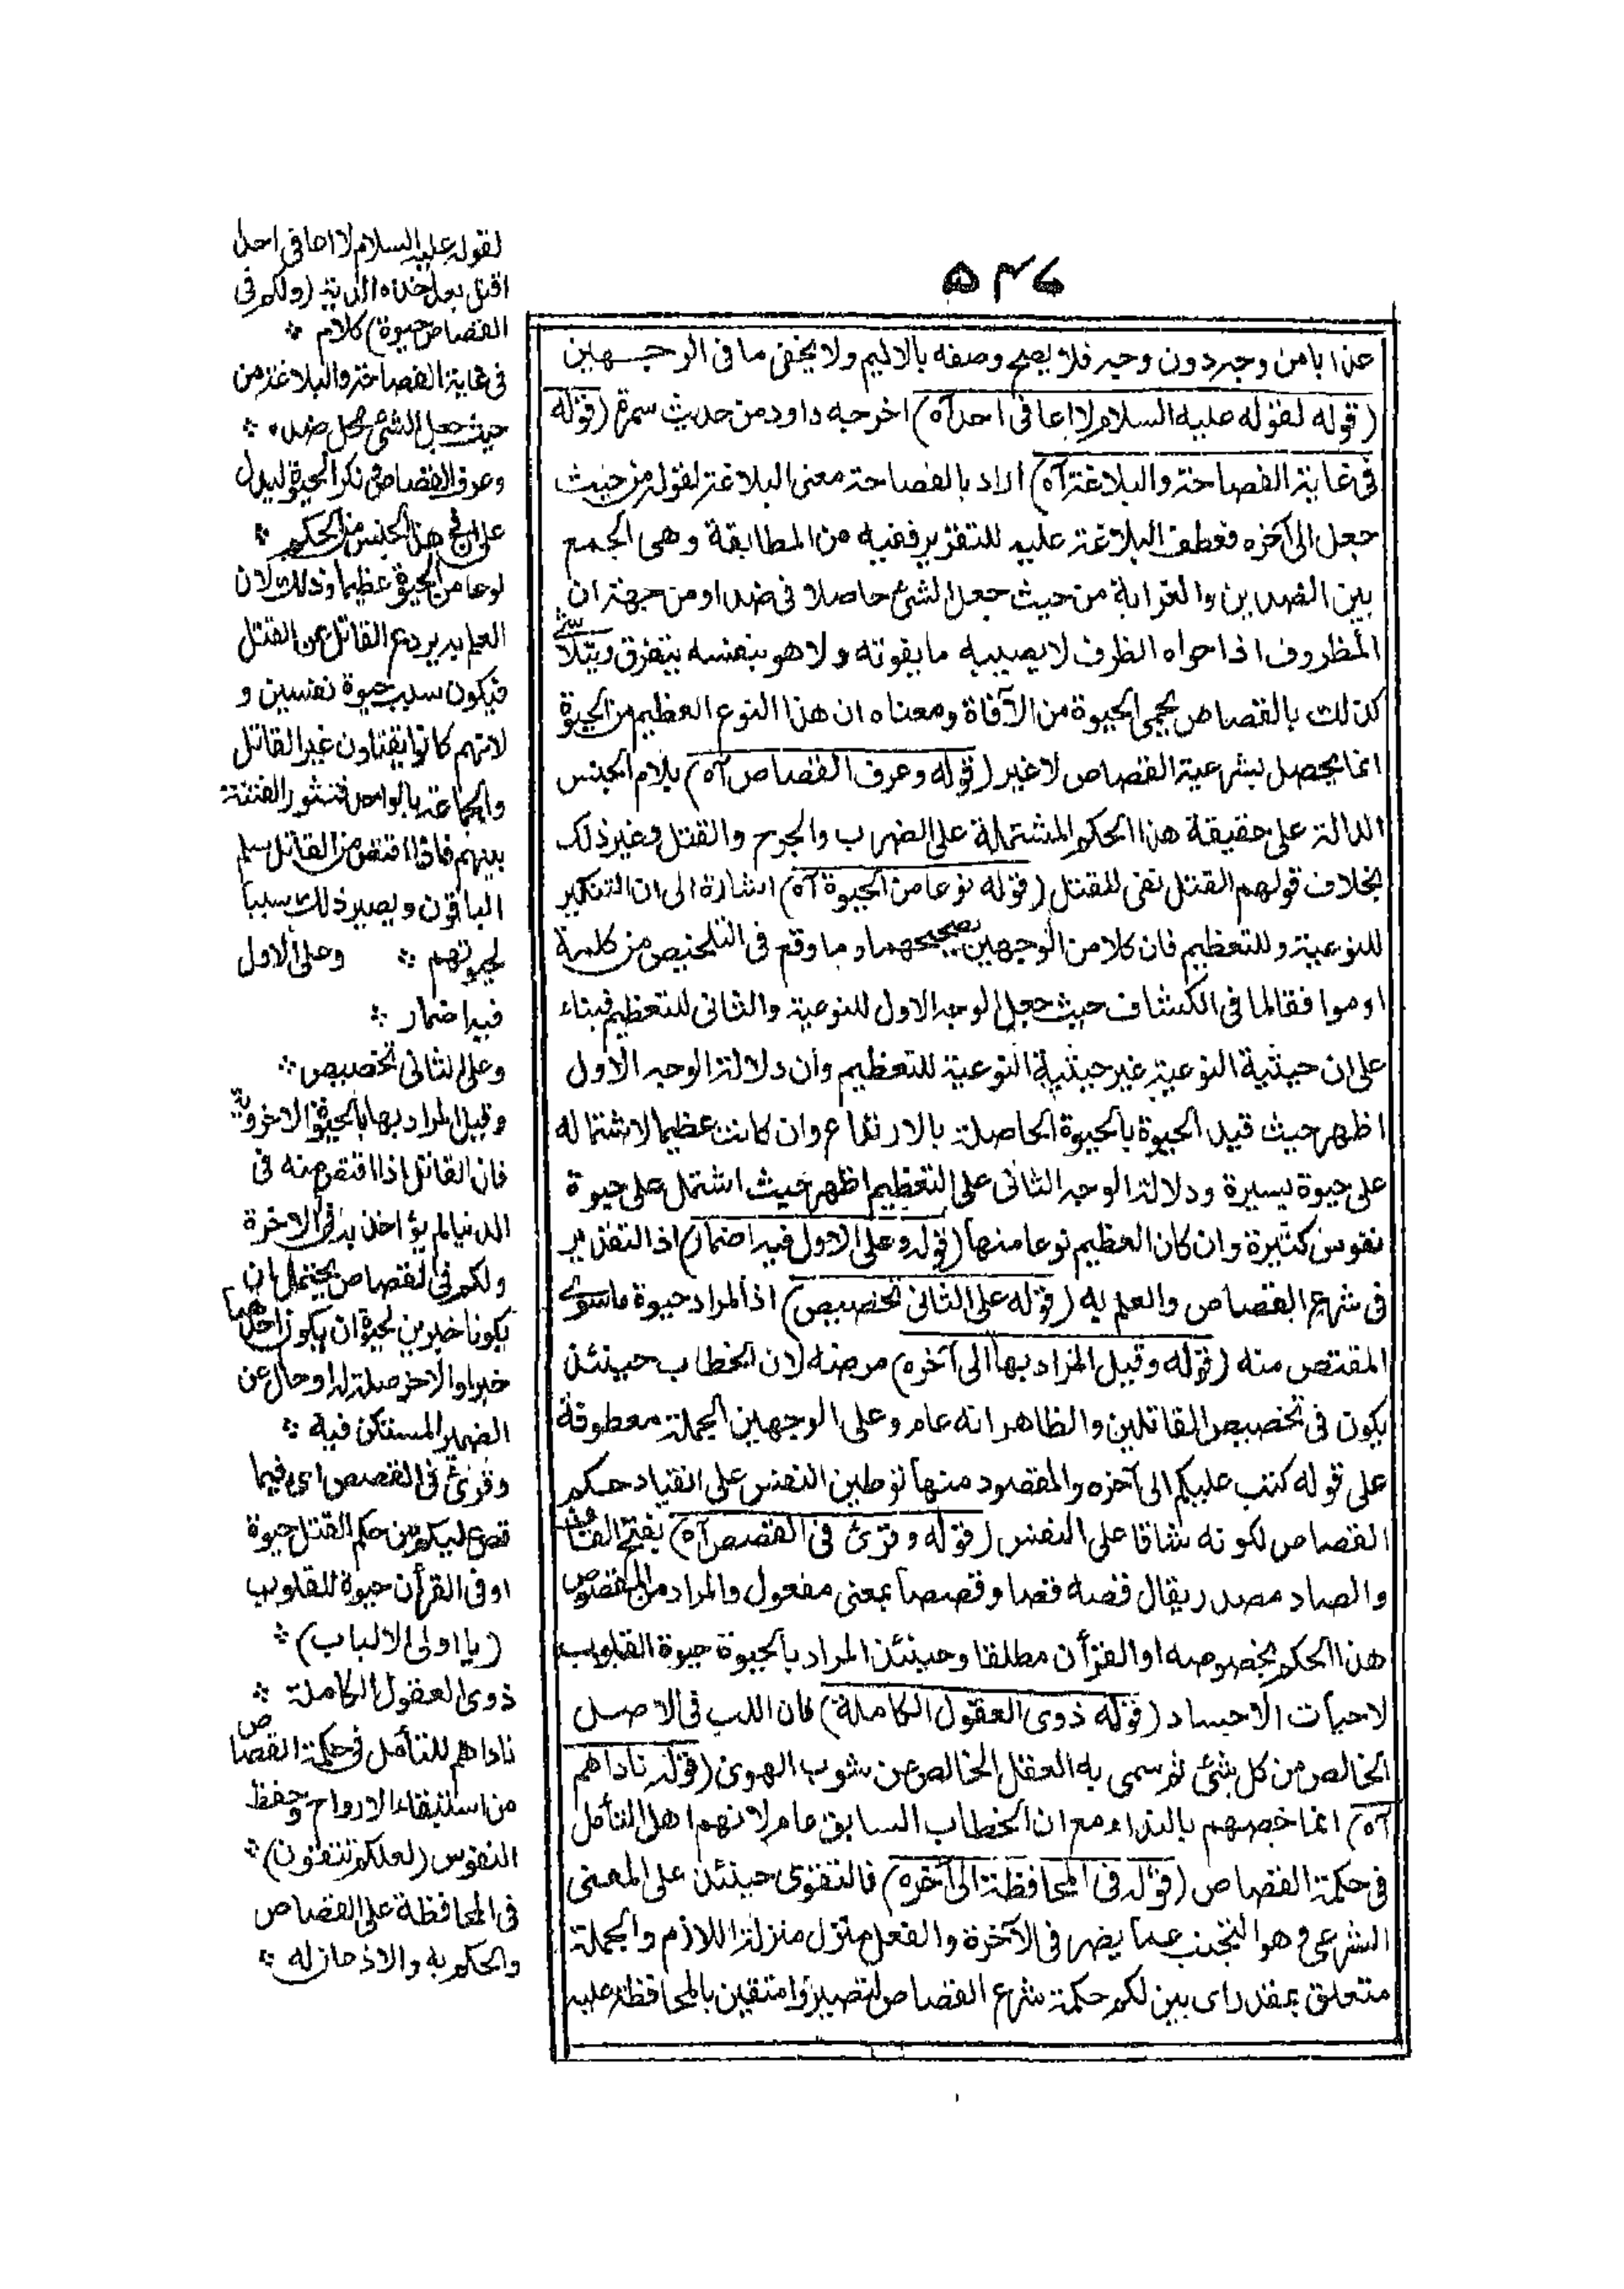 ٥٤٦
عذابا من وجه دون وجه فلا يصح وصفه بالاليم ولا يخفى ما فى الوجهين
(قوله لقوله عليه السلام لا اعافى احدا آه) اخرجه داود من حديث سمرة (قوله
فى غاية الفصاحة والبلاغة آه) اراد بالفصاحة معنى البلاغة لقوله من حيث
جعل الى آخره فعطف البلاغة عليه للتقرير ففيه من المطابقة وهى الجمع
بين الضدين والغرابة من حيث جعل الشئ حاصلا فى ضده او من جهة ان
المظروف اذا حواه الظرف لا يصيبه ما يفوته ولا هو بنفسه يتفرق ويتلاشى
كذلك بالقصاص يحمى الحيوة من الآفاة ومعناه ان هذا النوع العظيم من الحيوة
انما يحصل بشرعية القصاص لا غير (قوله وعرف القصاص آه) بلام الجنس
الدالة على حقيقة هذا الحكم المشتملة على الضرب والجرح والقتل وغير ذلك
بخلاف قولهم القتل نفى للقتل (قوله نوعا من الحيوة آه) اشارة الى ان التنكير
للنوعية وللتعظيم فان كلا من الوجهين يصححهما وما وقع فى التلخيص من كلمة
او موافقا لما فى الكشاف حيث جعل الوجه الاول للنوعية والثانى للتعظيم فبناء
على ان حيثية النوعية غير حيثية النوعية للتعظيم وان دلالة الوجه الاول
اظهر حيث قيد الحيوة بالحيوة الحاصلة بالارتداع وان كانت عظيما لاشتماله
على حيوة يسيرة ودلالة الوجه الثانى على التعظيم اظهر حيث اشتمل على حيوة
نفوس كثيرة وان كان العظيم نوعا منها (قوله وعلى الاول فيه اضمار) اذ التقدير
فى شرع القصاص والعلم به (قوله على الثانى تخصيص) اذ المراد حيوة ما سوى
المقتص منه (قوله وقيل المراد بها الى آخره) مرضه لان الخطاب حينئذ
يكون فى تخصيص القاتلين والظاهر انه عام وعلى الوجهين الجملة معطوفة
على قوله كتب عليكم الى آخره والمقصود منها توطين النفس على انقياد حكم
القصاص لكونه شاقا على النفس (قوله وقرئ فى القصص آه) بفتح القاف
والصاد مصدر يقال قصه قصا وقصصا بمعنى مفعول والمراد من المقصوص
هذا الحكم بخصوصه او القرأن مطلقا وحينئذ المراد بالحيوة حيوة القلوب
لا حيات الاجساد (قوله ذوى العقول الكاملة) فان اللب فى الاصل
الخالص من كل شئ ثم سمى به العقل الخالص عن شوب الهوى (قوله ناداهم
آه) انما خصهم بالنداء مع ان الخطاب السابق عام لانهم اهل التأمل
فى حكمة القصاص (قوله فى المحافظة الى آخره) فالتقوى حينئذ على المعنى
الشرعى وهو التجنب عما يضر فى الآخرة والفعل منزل منزلة اللازم والجملة
متعلق بمقدر اى بين لكم حكمة شرع القصاص لتصيروا متقين بالمحافظة عليه
لقوله عليه السلام لا اعافى احدا
اقتل بعد اخذه الدية (ولكم فى
القصاص حيوة) كلام ❊
فى غاية الفصاحة والبلاغة من
حيث جعل الشئ محل ضده ❊
وعرف القصاص ونكر الحيوة ليدل
على ان فى هذا الجنس من الحكم ❊
نوعا من الحيوة عظيما وذلك لان
العلم به يردع القاتل عن القتل
فيكون سبب حيوة نفسين و
لانهم كانوا يقتلون غير القاتل
والجماعة بالواحد فتثور الفتنة
بينهم فاذا اقتص من القاتل سلم
الباقون ويصير ذلك سببا
لحيوتهم ❊ وعلى الاول
فيه اضمار ❊
وعلى الثانى تخصيص ❊
وقيل المراد بها بالحيوة الاخروية
فان القاتل اذا اقتص منه فى
الدنيا لم يؤاخذ به فى الاخرة
ولكم فى القصاص يحتمل ان
يكونا خبرين لحيوة ان يكون احدهما
خبرا والآخر صلة له او حال عن
الضمير المستكن فيه ❊
وقرئ فى القصص اى فيما
قص عليكم من حكم القتل حيوة
او فى القرأن حيوة للقلوب
(يا اولى الالباب) ❊
ذوى العقول الكاملة ❊
ناداهم للتأمل فى حكمة القصاص
من استبقاء الارواح وحفظ
النفوس (لعلكم تتقون) ❊
فى المحافظة على القصاص
والحكم به والاذعان له ❊